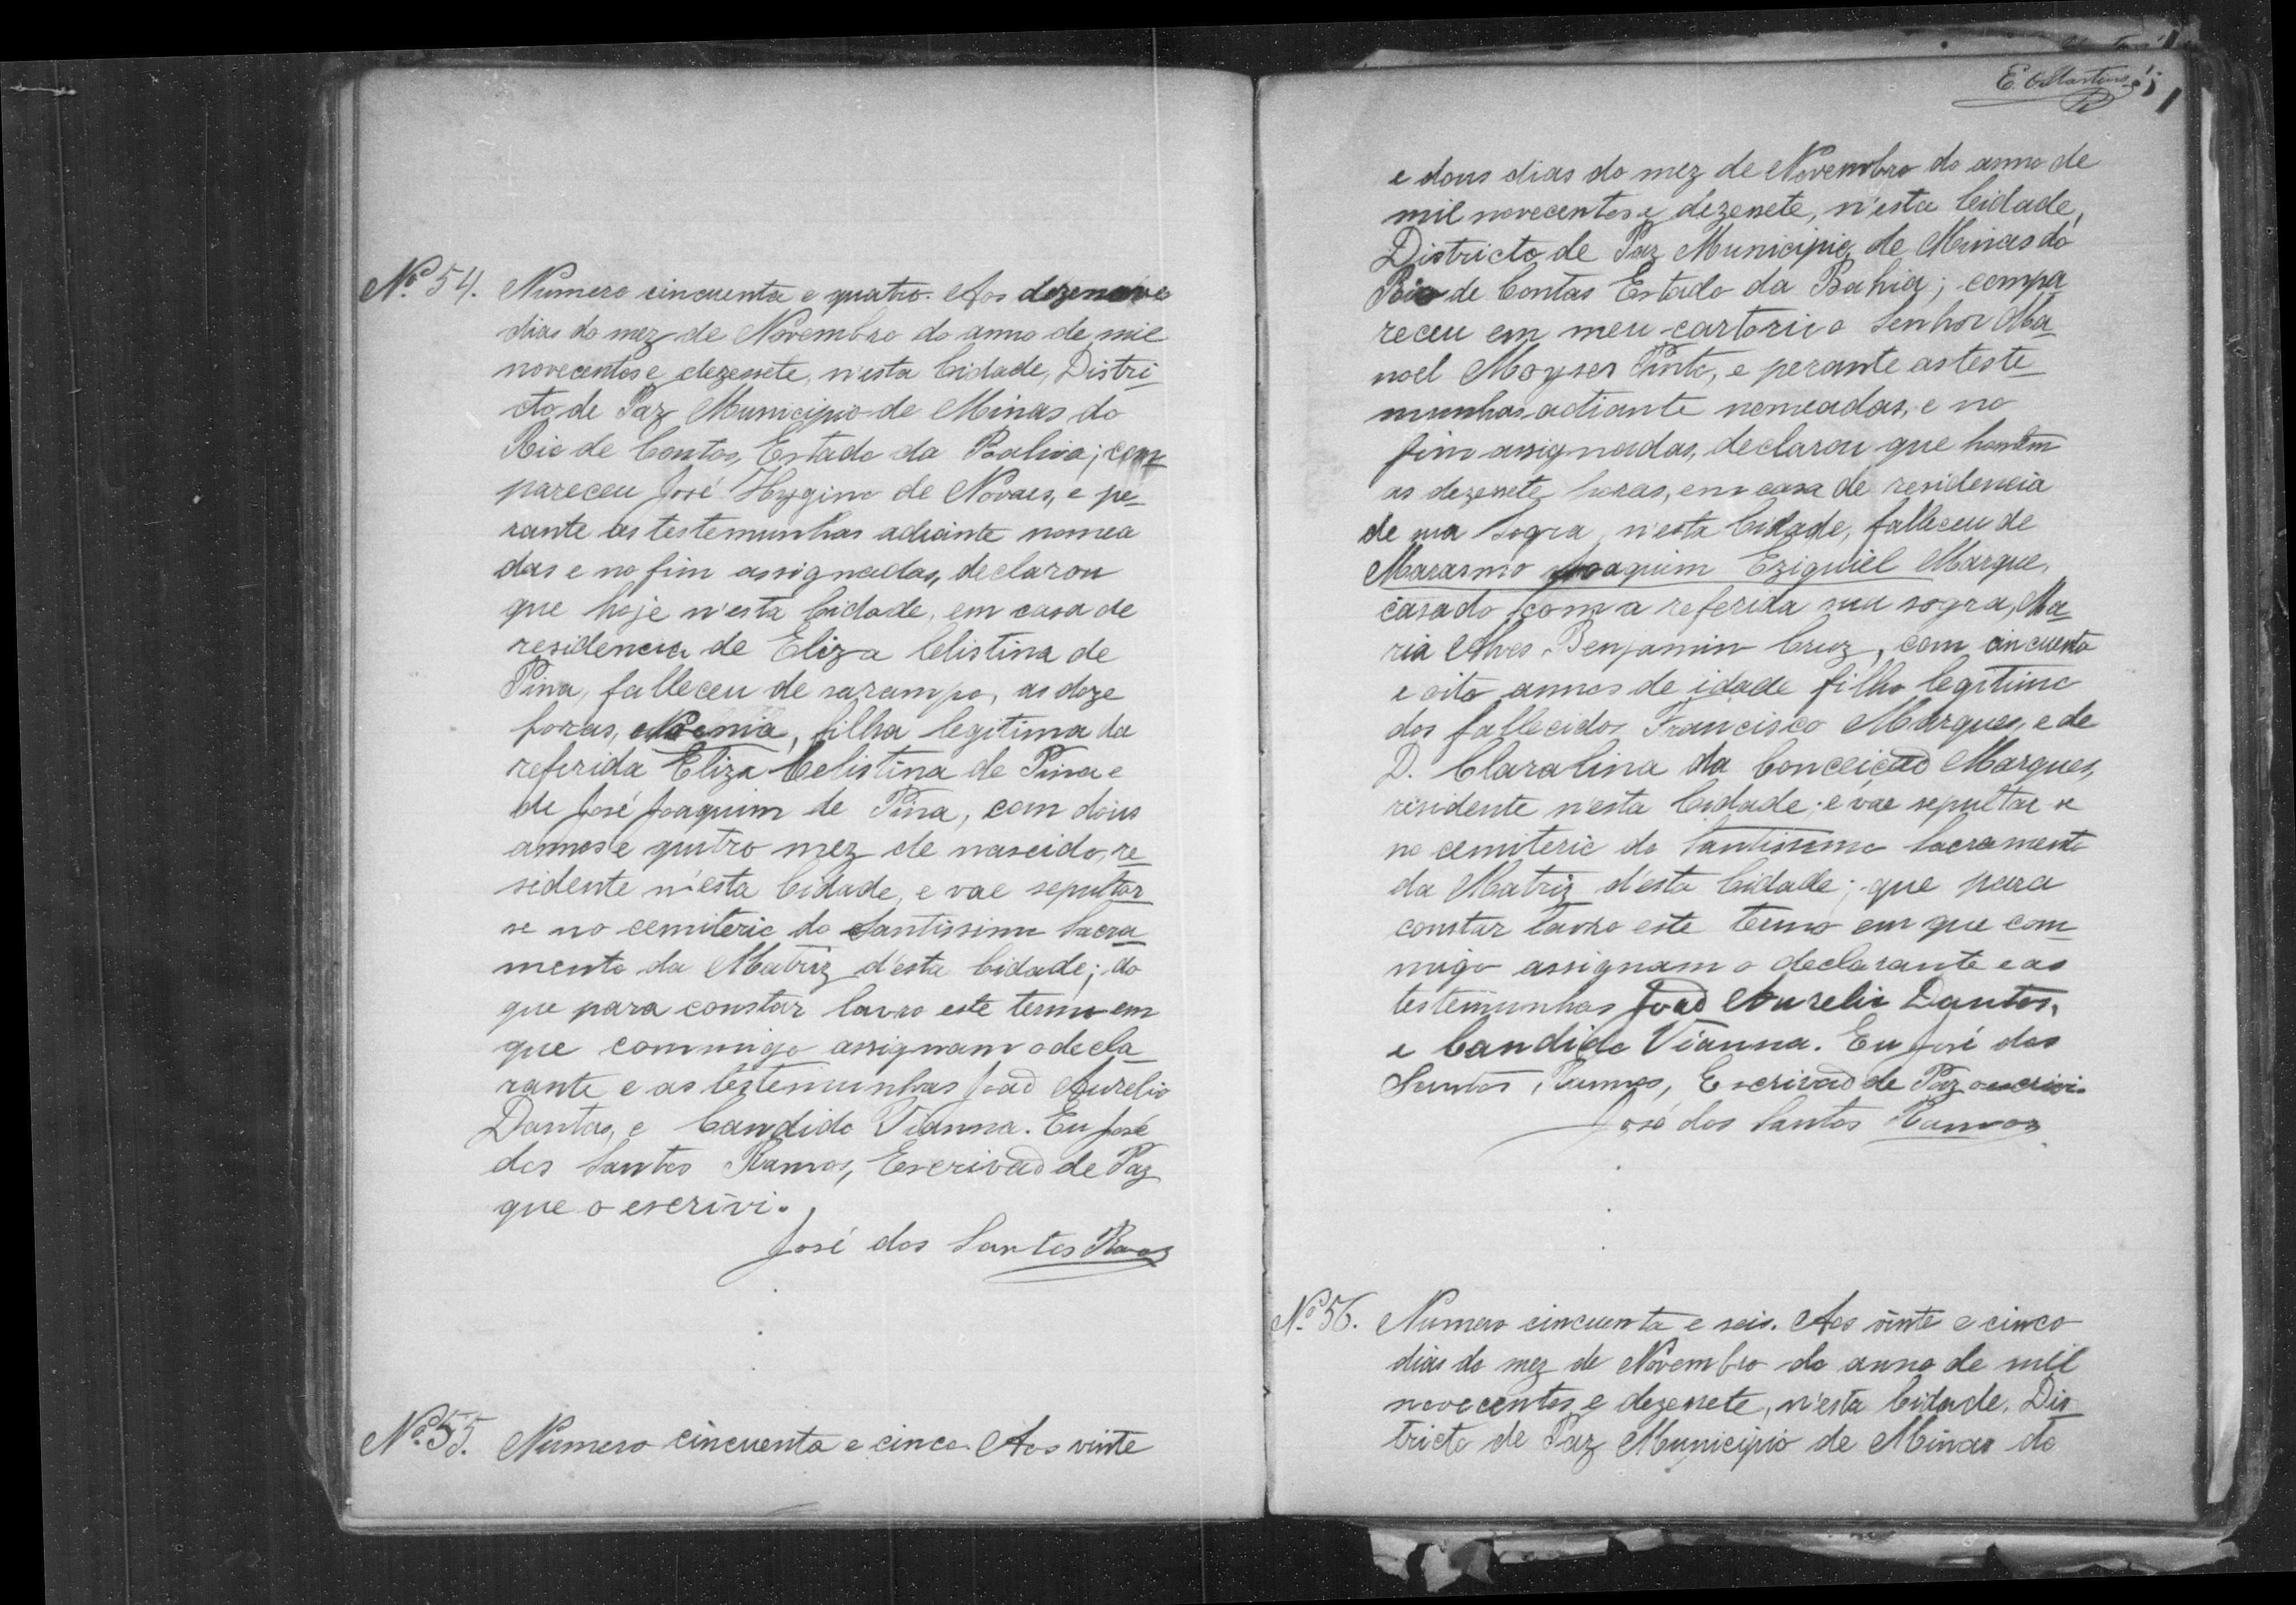 Nº 54. Numero cincuenta e quatro. Aos dezenove
dias do mez de Novembro do anno de mil
novecentos e dezessete, n'esta Cidade, Distri-
cto de Paz Municipio de Minas do
Rio de Contas, Estado da Bahia; com-
pareceu José Hygino de Novaes, e pe-
rante as testemunhas adiante nomea
das e no fim assignadas, declarou
que hoje n'esta Cidade, em casa de
residencia de Eliza Celistina de
Pina, falleceu de sarampo, as doze
horas, Noemia, filha legitima da
referida Eliza Celistina de Pina e
de José Joaquim de Pina, com dous
annos e quatro mez de nascido, re-
sidente n'esta Cidade, e vae sepultar
se no cemiterio do Santissimo Sacra-
mento da Matriz d'esta Cidade; do
que para constar lavro este termo em
que commigo assignam o decla-
rante e as testemunhas João Aurelio
Dantas, e Candido Vianna. Eu José
dos Santos Ramos, Escrivão de Paz
que o escrivi.
José dos Santos Ramos
Nº 55. Numero cincuenta e cinco. Aos vinte
E. Martins
e dous dias do mez de Novembro do anno de
mil novecentos e dezessete, n'esta Cidade,
Districto de Paz Municipio de Minas do
Rio de Contas Estado da Bahia; compa-
receu em meu cartorio o Senhor Ma-
noel Moyses Pinto, e perante as teste-
munhas adiante nomeadas, e no
fim assignadas, declarou que hontem
as dezessete horas, em casa de residencia
de sua sogra, n'esta Cidade, falleceu de
Marasmo Joaquim Eziquiel Marque,
casado com a referida sua sogra, Ma-
ria Alves Benjamin Cruz, com cincuenta
e oito annos de idade filho legitimo
dos fallecidos Francisco Marques, e de
D. Claralina da Conceição Marques,
risidente n'esta Cidade; e vae sepultar se
no cemiterio do Santissimo Sacramento
da Matriz d'esta Cidade; que para
constar lavro este termo em que com-
migo assignam o declarante e as
testemunhas João Aurelio Dantas,
e Candido Vianna. Eu José dos
Santos Ramos, Escrivão de Paz o escrivi.
José dos Santos Ramos
Nº 56. Numero cincuenta e seis. Aos vinte e cinco
dias do mez de Novembro do anno de mil
novecentos e dezessete, n'esta Cidade, Dis-
tricto de Paz Municipio de Minas do